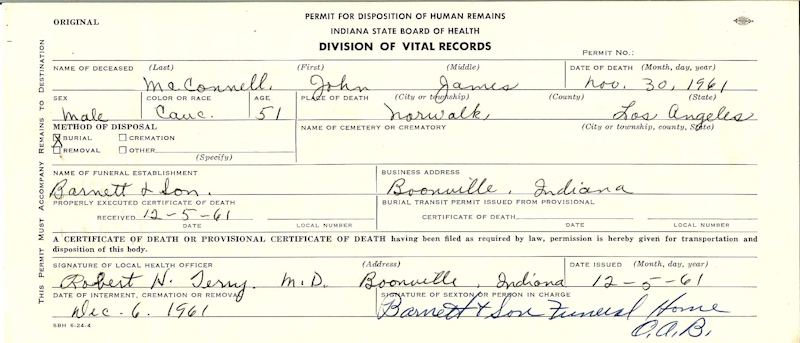 ORIGINAL
PERMIT FOR DISPOSITION OF HUMAN REMAINS
INDIANA STATE BOARD OF HEALTH
DIVISION OF VITAL RECORDS
PERMIT NO.:
THIS PERMIT MUST ACCOMPANY REMAINS TO DESTINATION
NAME OF DECEASED (Last) (First) (Middle) DATE OF DEATH (Month, day, year)
McConnell, John James Nov. 30, 1961
SEX COLOR OR RACE AGE PLACE OF DEATH (City or township) (County) (State)
Male Cauc. 51 Norwalk, Los Angeles
METHOD OF DISPOSAL NAME OF CEMETERY OR CREMATORY (City or township, county, State)
X BURIAL CREMATION
REMOVAL OTHER
(Specify)
NAME OF FUNERAL ESTABLISHMENT BUSINESS ADDRESS
Barnett & Son. Boonville, Indiana
PROPERLY EXECUTED CERTIFICATE OF DEATH BURIAL TRANSIT PERMIT ISSUED FROM PROVISIONAL
RECEIVED 12-5-61 CERTIFICATE OF DEATH
DATE LOCAL NUMBER DATE LOCAL NUMBER
A CERTIFICATE OF DEATH OR PROVISIONAL CERTIFICATE OF DEATH having been filed as required by law, permission is hereby given for transportation and
disposition of this body.
SIGNATURE OF LOCAL HEALTH OFFICER (Address) DATE ISSUED (Month, day, year)
Robert N. Terry. M.D. Boonville, Indiana 12-5-61
DATE OF INTERMENT, CREMATION OR REMOVAL SIGNATURE OF SEXTON OR PERSON IN CHARGE
Dec. 6, 1961 Barnett & Son Funeral Home
O.A.B.
SBH 6-24-4